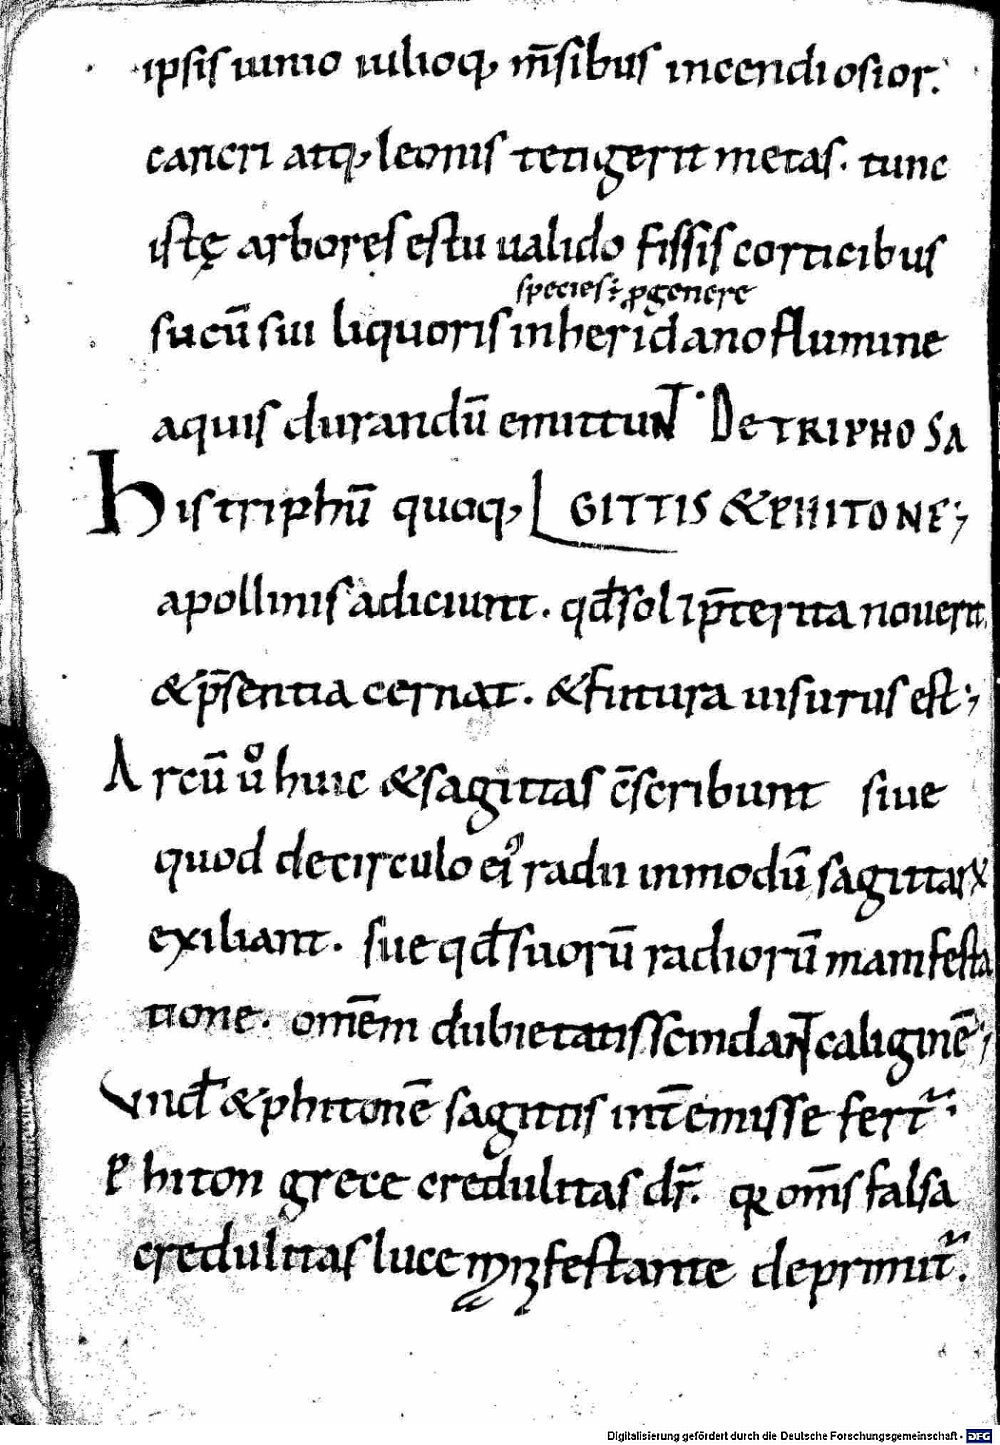 ipsis iunio iulioq; m̄sibus incendiosior.
cancri atq; leonis tetigerit metas. tunc
istę arbores estu ualido fissis corticibus
species ÷ ꝓ genere
sucū sui liquoris inheridano flumine
aquis durandū emittunt. DE TRIPHO SA
Histriphū quoq; GITTIS & PHITONE;
apollinis adiciunt. qđ sol ⁊ p̄terita nouerit
& p̄sentia cernat. & futura uisurus est;
Arcū ů huic & sagittas c̄scribunt siue
quod decirculo ei᾽ radii inmodū sagittaꝝ
exiliant. siue qđ suorū radiorū manifesta
tione. om̄em dubietatis scindant caliginē;
Vnđ & phitonē sagittis int̄emisse fert᷑;
Phiton grece credulitas dr̄. qꝛ om̄s falsa
credulitas luce manifestante deprimit᷑.
Digitalisierung gefördert durch die Deutsche Forschungsgemeinschaft - DFG